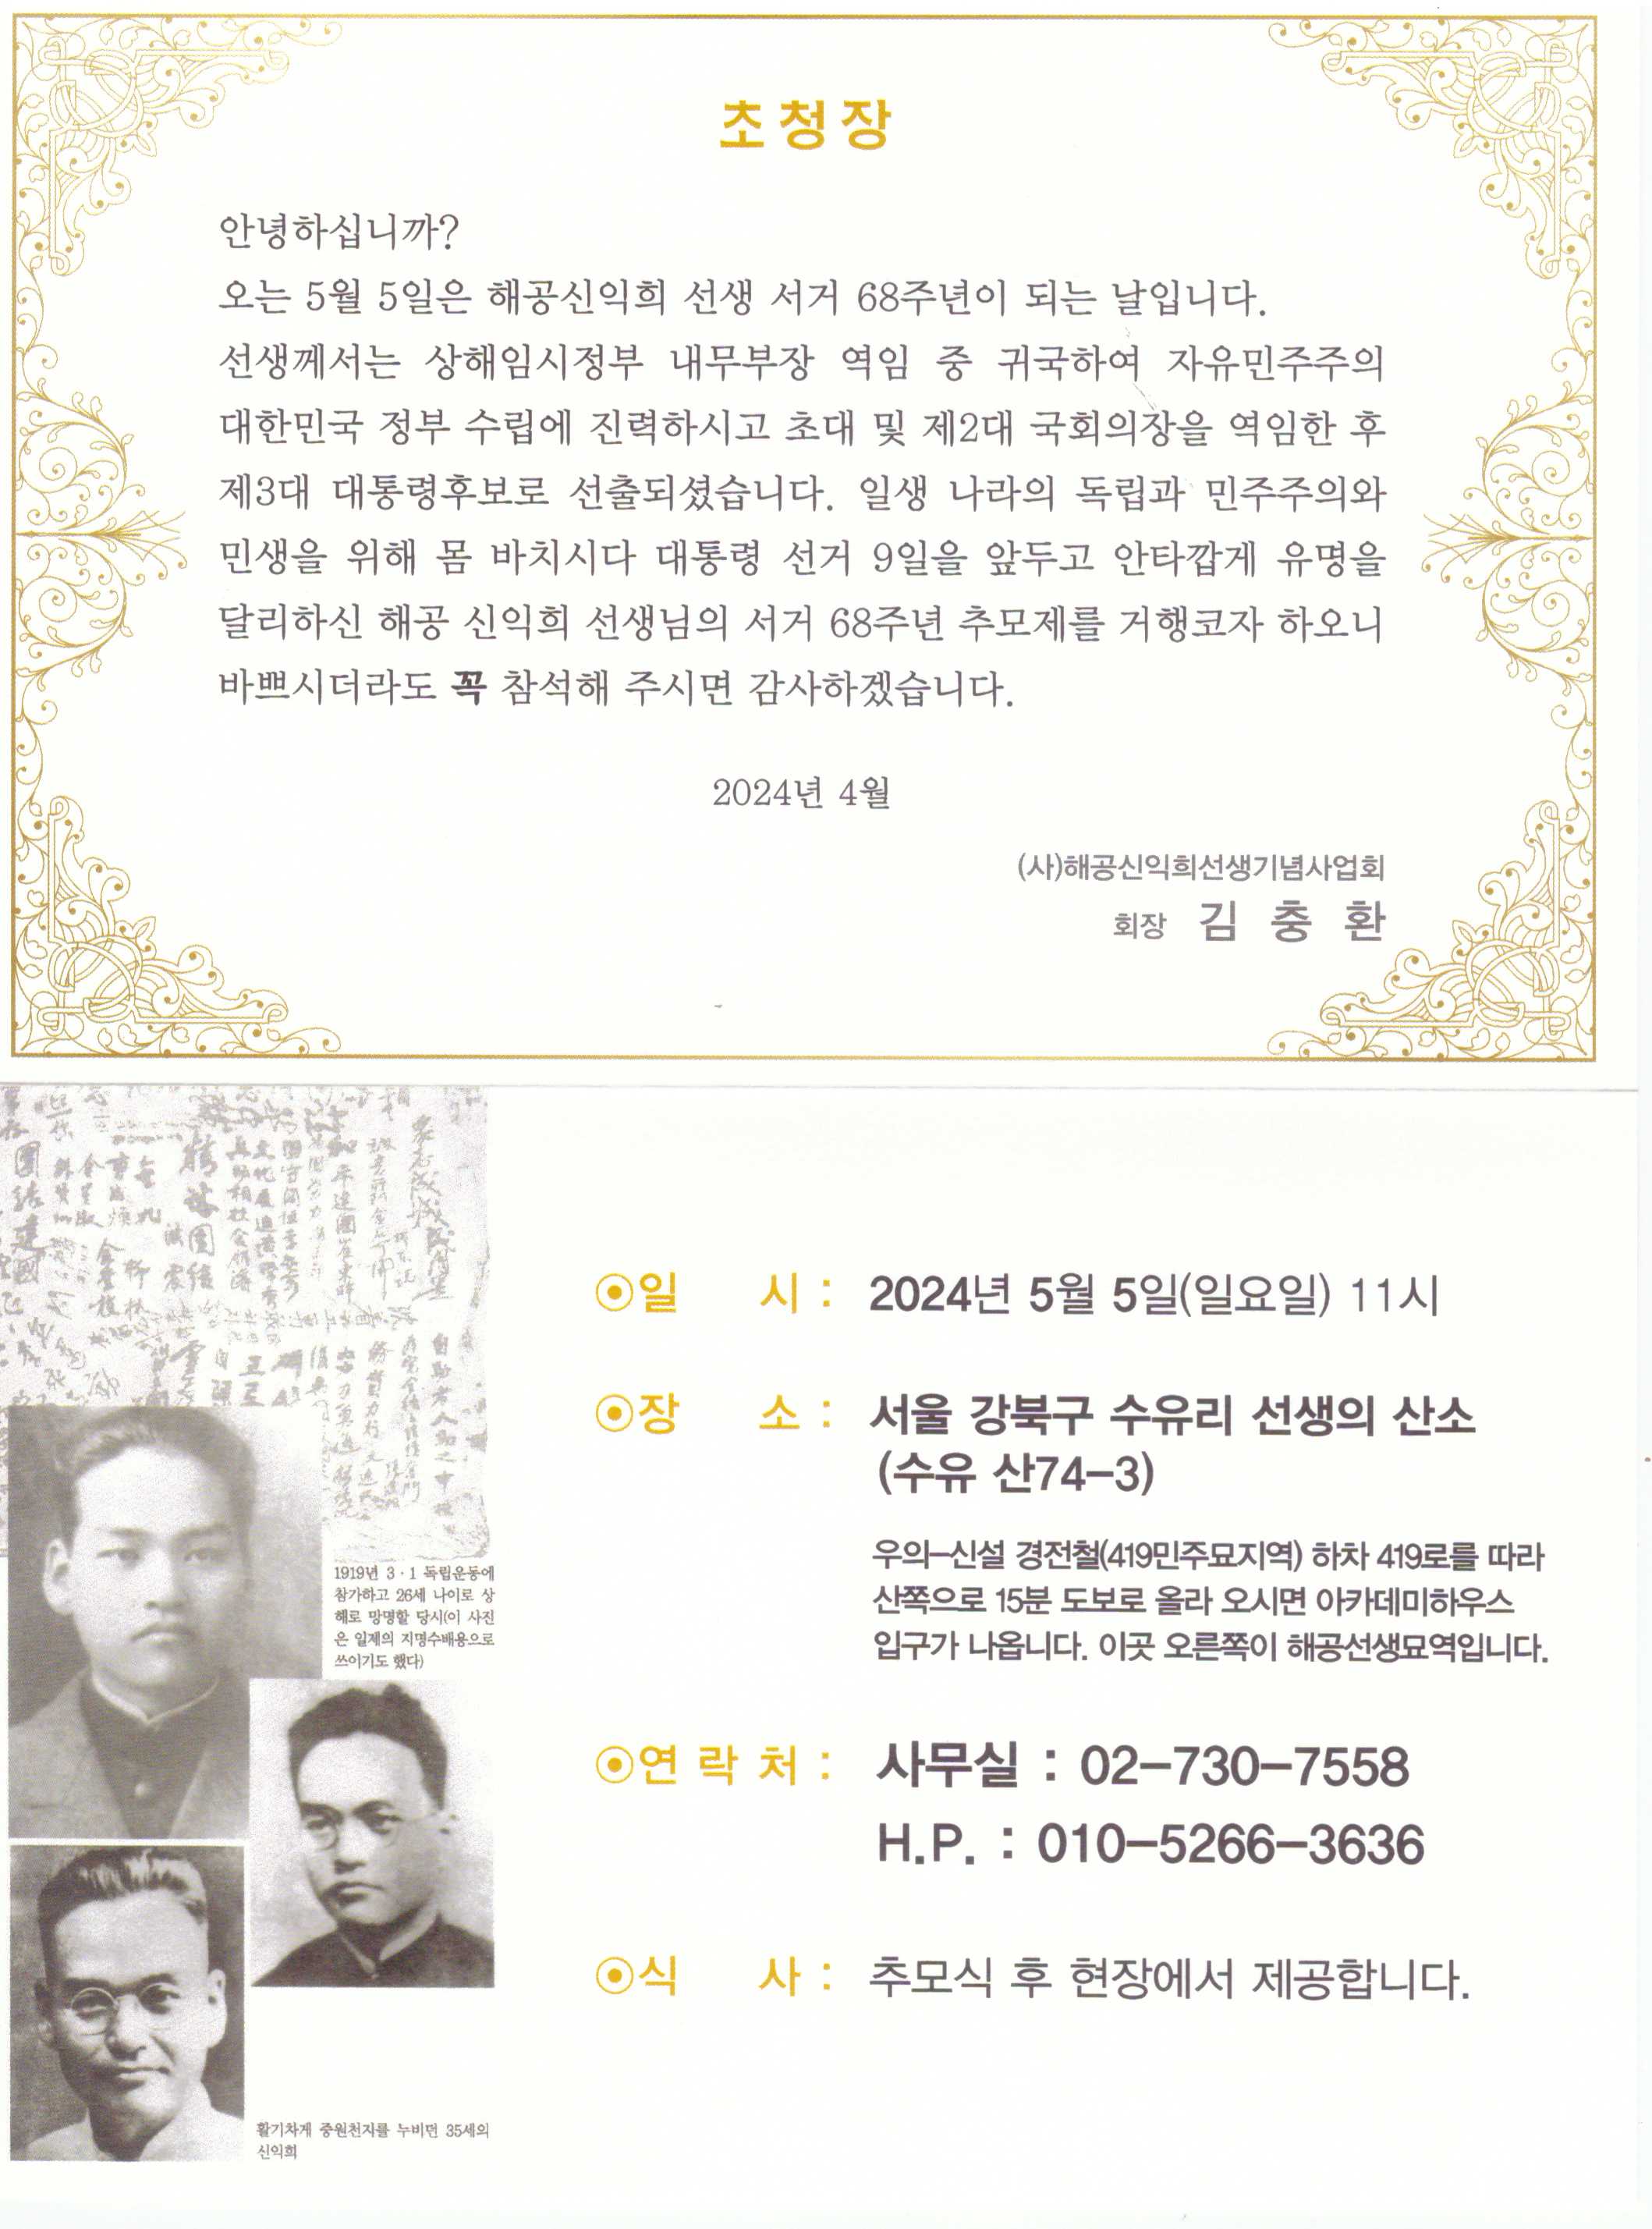 초청장
안녕하십니까?
오는 5월 5일은 해공신익희 선생 서거 68주년이 되는 날입니다.
선생께서는 상해임시정부 내무부장 역임 중 귀국하여 자유민주주의
대한민국 정부 수립에 진력하시고 초대 및 제2대 국회의장을 역임한 후
제3대 대통령후보로 선출되셨습니다. 일생 나라의 독립과 민주주의와
민생을 위해 몸 바치시다 대통령 선거 9일을 앞두고 안타깝게 유명을
달리하신 해공 신익희 선생님의 서거 68주년 추모제를 거행코자 하오니
바쁘시더라도 꼭 참석해 주시면 감사하겠습니다.
2024년 4월
(사)해공신익희선생기념사업회
회장 김 충 환
1919년 3·1 독립운동에
참가하고 26세 나이로 상
해로 망명할 당시(이 사진
은 일제의 지명수배용으로
쓰이기도 했다)
활기차게 중원천지를 누비던 35세의
신익희
⊙일 시 : 2024년 5월 5일(일요일) 11시
⊙장 소 : 서울 강북구 수유리 선생의 산소
(수유 산74-3)
우의-신설 경전철(419민주묘지역) 하차 419로를 따라
산쪽으로 15분 도보로 올라 오시면 아카데미하우스
입구가 나옵니다. 이곳 오른쪽이 해공선생묘역입니다.
⊙연 락 처 : 사무실 : 02-730-7558
H.P. : 010-5266-3636
⊙식 사 : 추모식 후 현장에서 제공합니다.